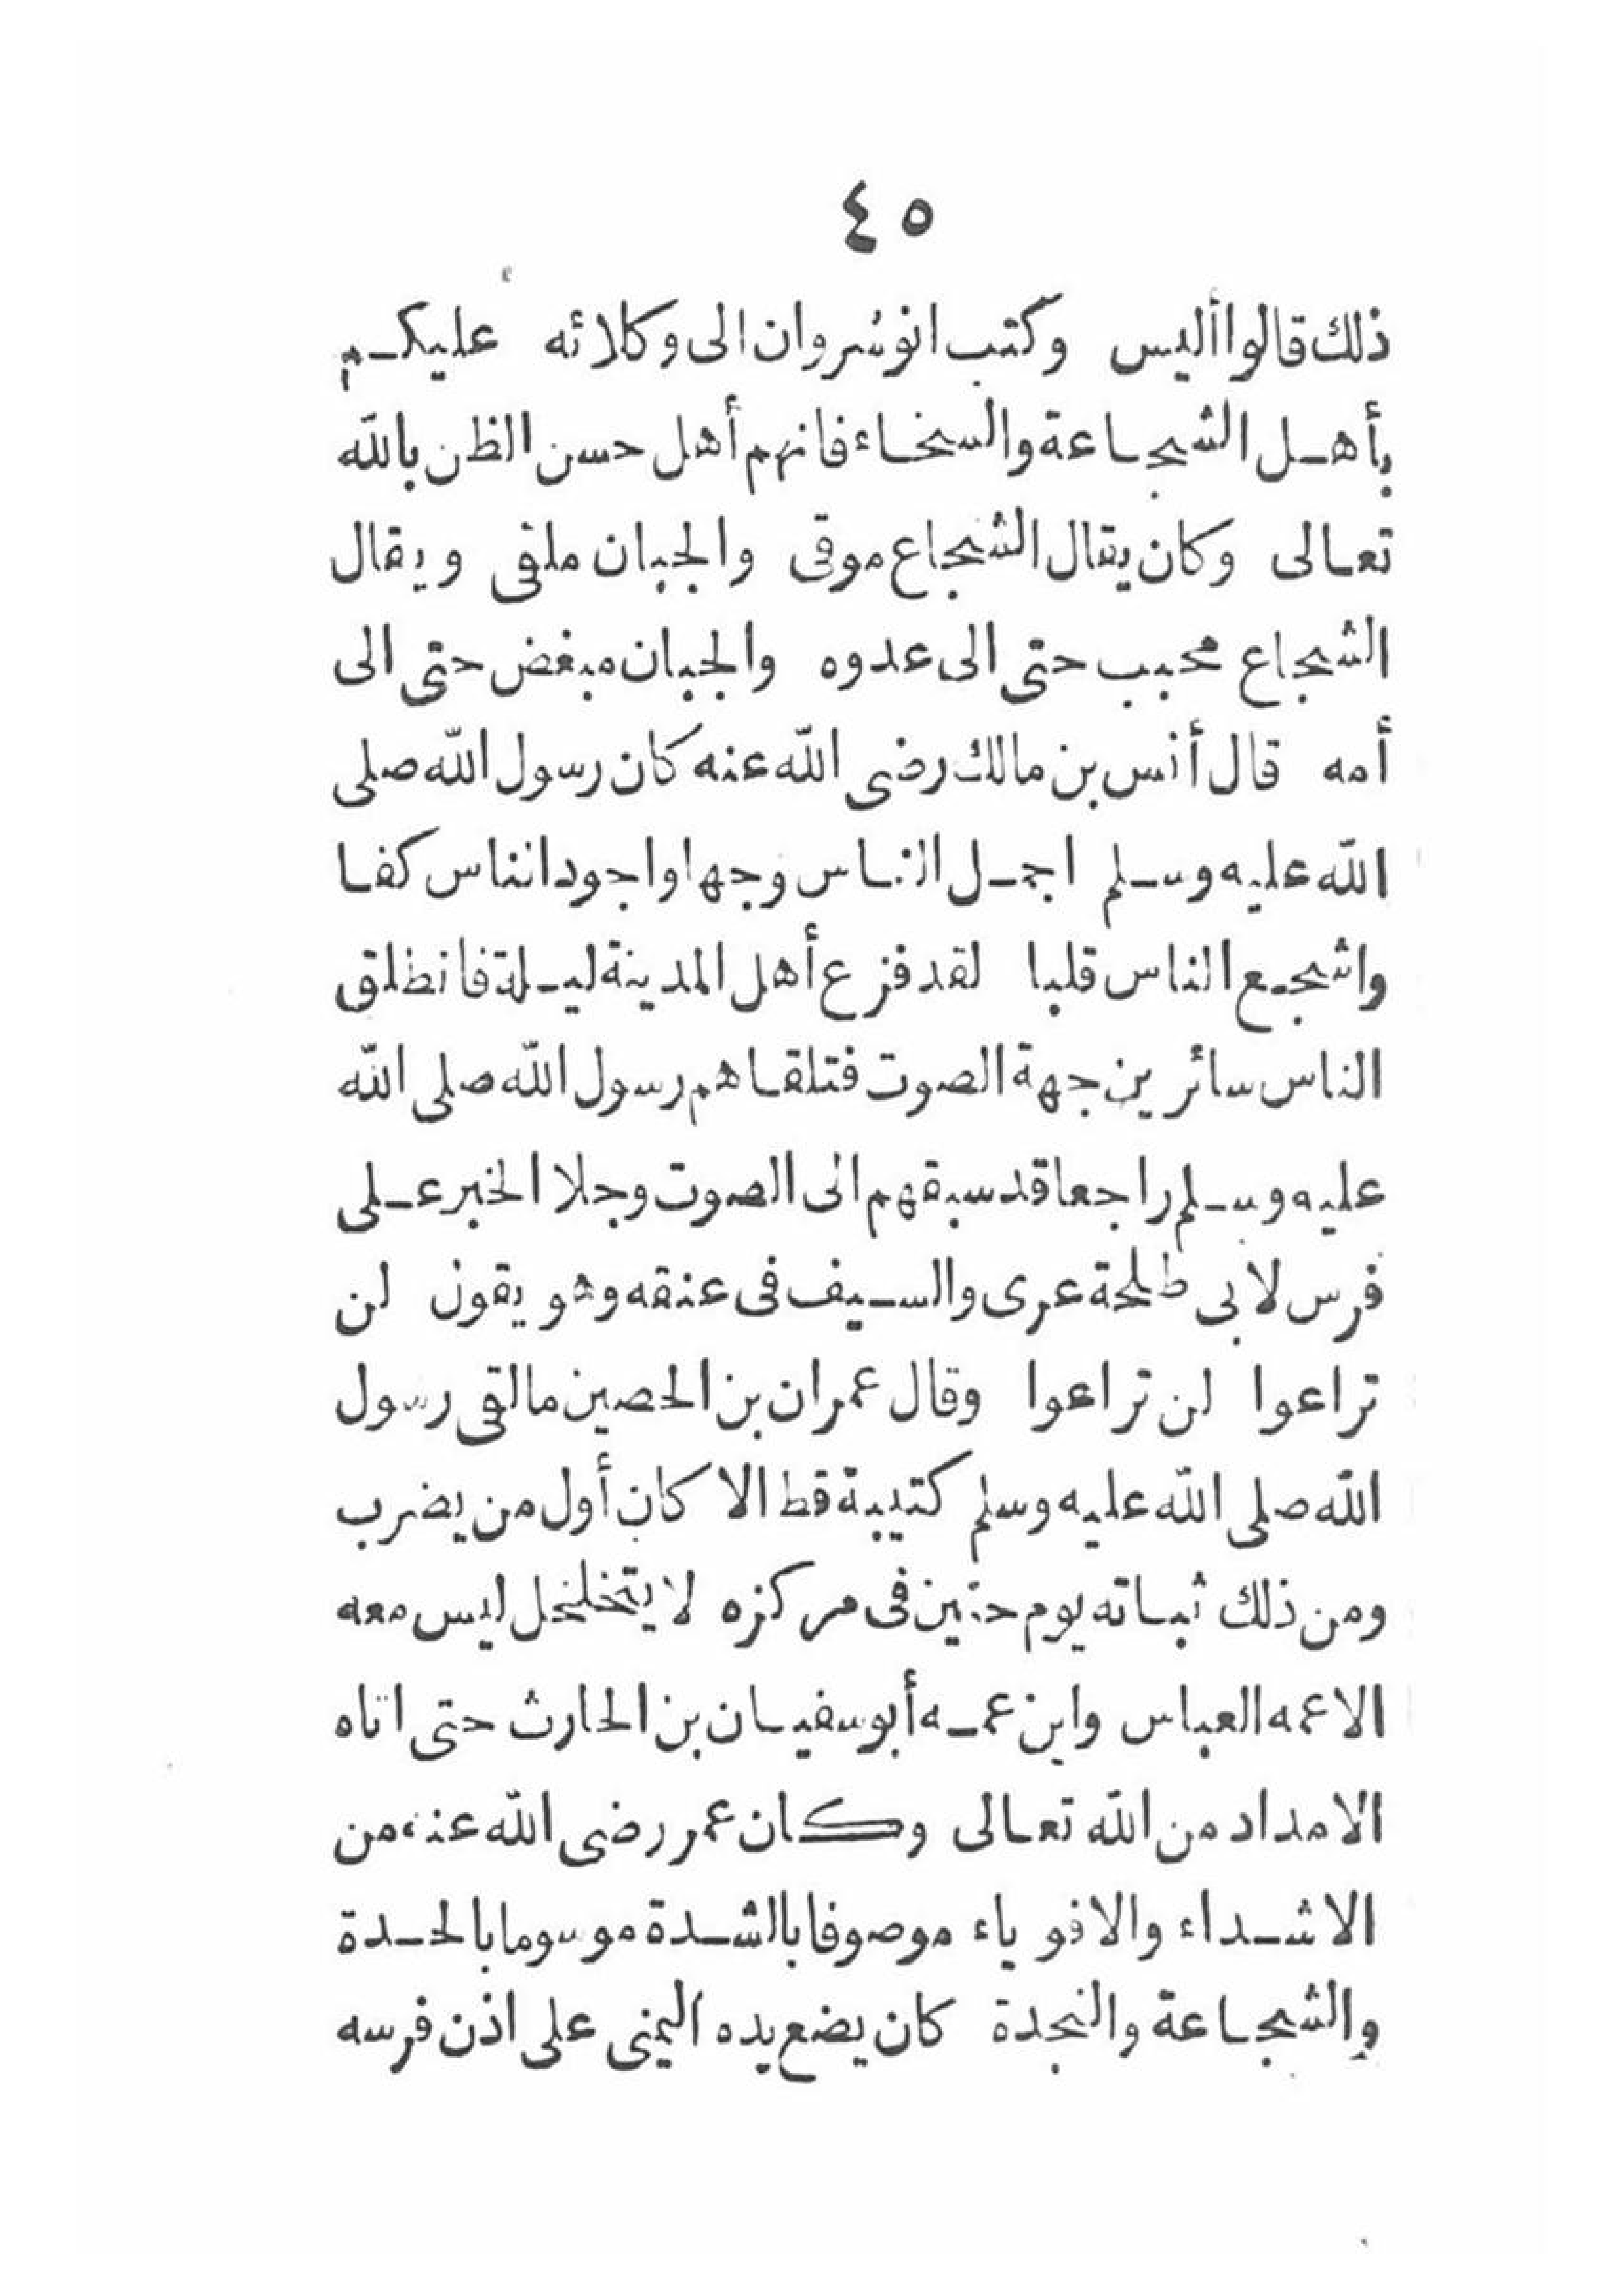 ٤٥
ذلك قالوا أليس وكتب انوشروان الى وكلائه عليكم
بأهل الشجاعة والسخاء فانهم أهل حسن الظن بالله
تعالى وكان يقال الشجاع موقى والجبان ملقى ويقال
الشجاع محبب حتى الى عدوه والجبان مبغض حتى الى
أمه قال أنس بن مالك رضى الله عنه كان رسول الله صلى
الله عليه وسلم اجمل الناس وجها واجود الناس كفا
واشجع الناس قلبا لقد فزع أهل المدينة ليلة فانطلق
الناس سائرين جهة الصوت فتلقاهم رسول الله صلى الله
عليه وسلم راجعا قد سبقهم الى الصوت وجلا الخبر على
فرس لابى طلحة عرى والسيف فى عنقه وهو يقول لن
تراعوا لن تراعوا وقال عمران بن الحصين مالقى رسول
الله صلى الله عليه وسلم كتيبة قط الا كان أول من يضرب
ومن ذلك ثباته يوم حنين فى مركزه لا يتخلخل ليس معه
الاعمه العباس وابن عمه أبوسفيان بن الحارث حتى اتاه
الامداد من الله تعالى وكان عمر رضى الله عنه من
الاشداء والاقوياء موصوفا بالشدة موسوما بالحدة
والشجاعة والنجدة كان يضع يده اليمنى على اذن فرسه